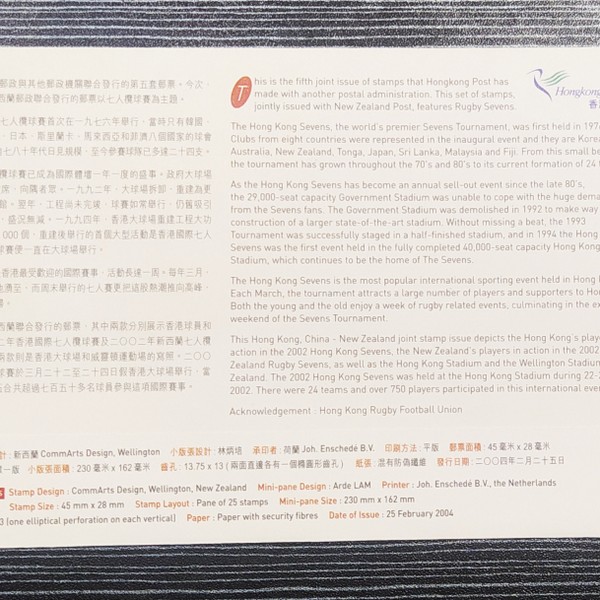 郵政與其他郵政機關聯合發行的第五套郵票。今次,
西蘭郵政聯合發行的郵票以七人欖球賽為主題。
七人欖球賽首次在一九七六年舉行,當時只有韓國、
、日本、斯里蘭卡、馬來西亞和菲濟八個國家的球會
自七八十年代日見規模,至今參賽球隊已多達二十四支。
欖球賽已成為國際體壇一年一度的盛事。政府大球場
席,向隅者眾。一九九二年,大球場拆卸,重建為更
館。翌年,工程尚未完竣,球賽如常舉行,仍舊吸引
,盛況無減。一九九四年,香港大球場重建工程大功
000 個,重建後舉行的首個大型活動是香港國際七人
球賽便一直在大球場舉行。
是香港最受歡迎的國際賽事,活動長達一周。每年三月,
地湧至,而周末舉行的七人賽更把這股熱潮推向高峰,
西蘭聯合發行的郵票,其中兩款分別展示香港球員和
二年香港國際七人欖球賽及二〇〇二年新西蘭七人欖
兩款則是香港大球場和威靈頓運動場的寫照。二〇〇
球賽於三月二十二至二十四日假香港大球場舉行,當
伍合共超過七百五十多名球員參與這項國際賽事。
This is the fifth joint issue of stamps that Hongkong Post has
made with another postal administration. This set of stamps,
jointly issued with New Zealand Post, features Rugby Sevens.
Hongkong
香
The Hong Kong Sevens, the world's premier Sevens Tournament, was first held in 197
Clubs from eight countries were represented in the inaugural event and they are Korea
Australia, New Zealand, Tonga, Japan, Sri Lanka, Malaysia and Fiji. From this small be
the tournament has grown throughout the 70's and 80's to its current formation of 24 t
As the Hong Kong Sevens has become an annual sell-out event since the late 80's,
the 29,000-seat capacity Government Stadium was unable to cope with the huge dema
from the Sevens fans. The Government Stadium was demolished in 1992 to make way
construction of a larger state-of-the-art stadium. Without missing a beat, the 1993
Tournament was successfully staged in a half-finished stadium, and in 1994 the Hong
Sevens was the first event held in the fully completed 40,000-seat capacity Hong Kong
Stadium, which continues to be the home of The Sevens.
The Hong Kong Sevens is the most popular international sporting event held in Hong K
Each March, the tournament attracts a large number of players and supporters to Hon
Both the young and the old enjoy a week of rugby related events, culminating in the ex
weekend of the Sevens Tournament.
This Hong Kong, China - New Zealand joint stamp issue depicts the Hong Kong's play
action in the 2002 Hong Kong Sevens, the New Zealand's players in action in the 2002
Zealand Rugby Sevens, as well as the Hong Kong Stadium and the Wellington Stadium
Zealand. The 2002 Hong Kong Sevens was held at the Hong Kong Stadium during 22-2
2002. There were 24 teams and over 750 players participated in this international even
Acknowledgement : Hong Kong Rugby Football Union
計 : 新西蘭 CommArts Design, Wellington 小版張設計 : 林炳培 承印者 : 荷蘭 Joh. Enschedé B.V. 印刷方法 : 平版 郵票面積 : 45 毫米 x 28 毫米
一版 小版張面積 : 230 毫米 x 162 毫米 齒孔 : 13.75 x 13 (兩面直邊各有一個橢圓形齒孔) 紙張 : 混有防偽纖維 發行日期 : 二〇〇四年二月二十五日
Stamp Design : CommArts Design, Wellington, New Zealand Mini-pane Design : Arde LAM Printer : Joh. Enschedé B.V., the Netherlands
Stamp Size : 45 mm x 28 mm Stamp Layout : Pane of 25 stamps Mini-pane Size : 230 mm x 162 mm
3 (one elliptical perforation on each vertical) Paper : Paper with security fibres Date of Issue : 25 February 2004